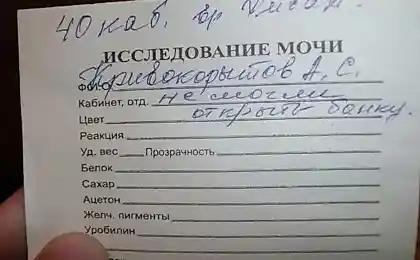 40 каб. вр
ИССЛЕДОВАНИЕ МОЧИ
Фото Кривокорытов А. С.
Кабинет, отд. не могли
Цвет открыть банку.
Реакция
Уд. вес Прозрачность
Белок
Сахар
Ацетон
Желч. пигменты
Уробилин